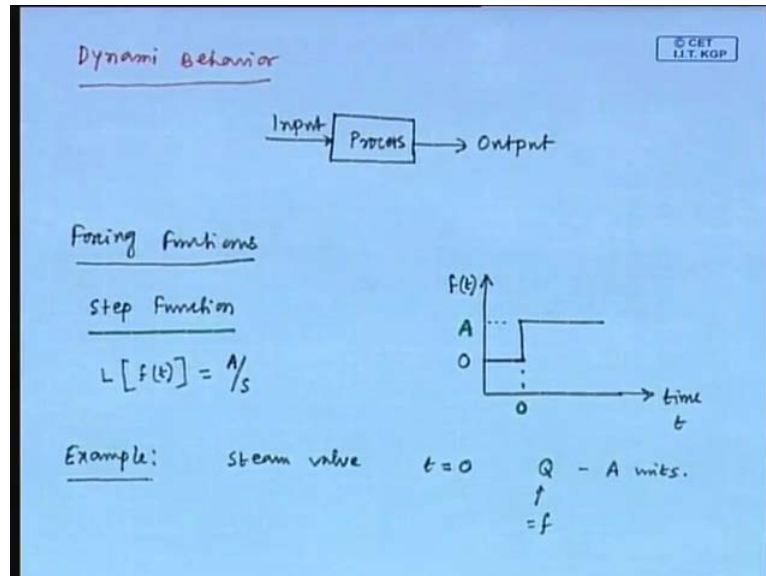 Dynami Behavior
© CET
I.I.T. KGP
Input
Process
Output
Forcing functions
Step Function
L[f(t)] = A/s
f(t)
A
0
0
time
t
Example: Steam valve t = 0 Q - A units.
↑
= f